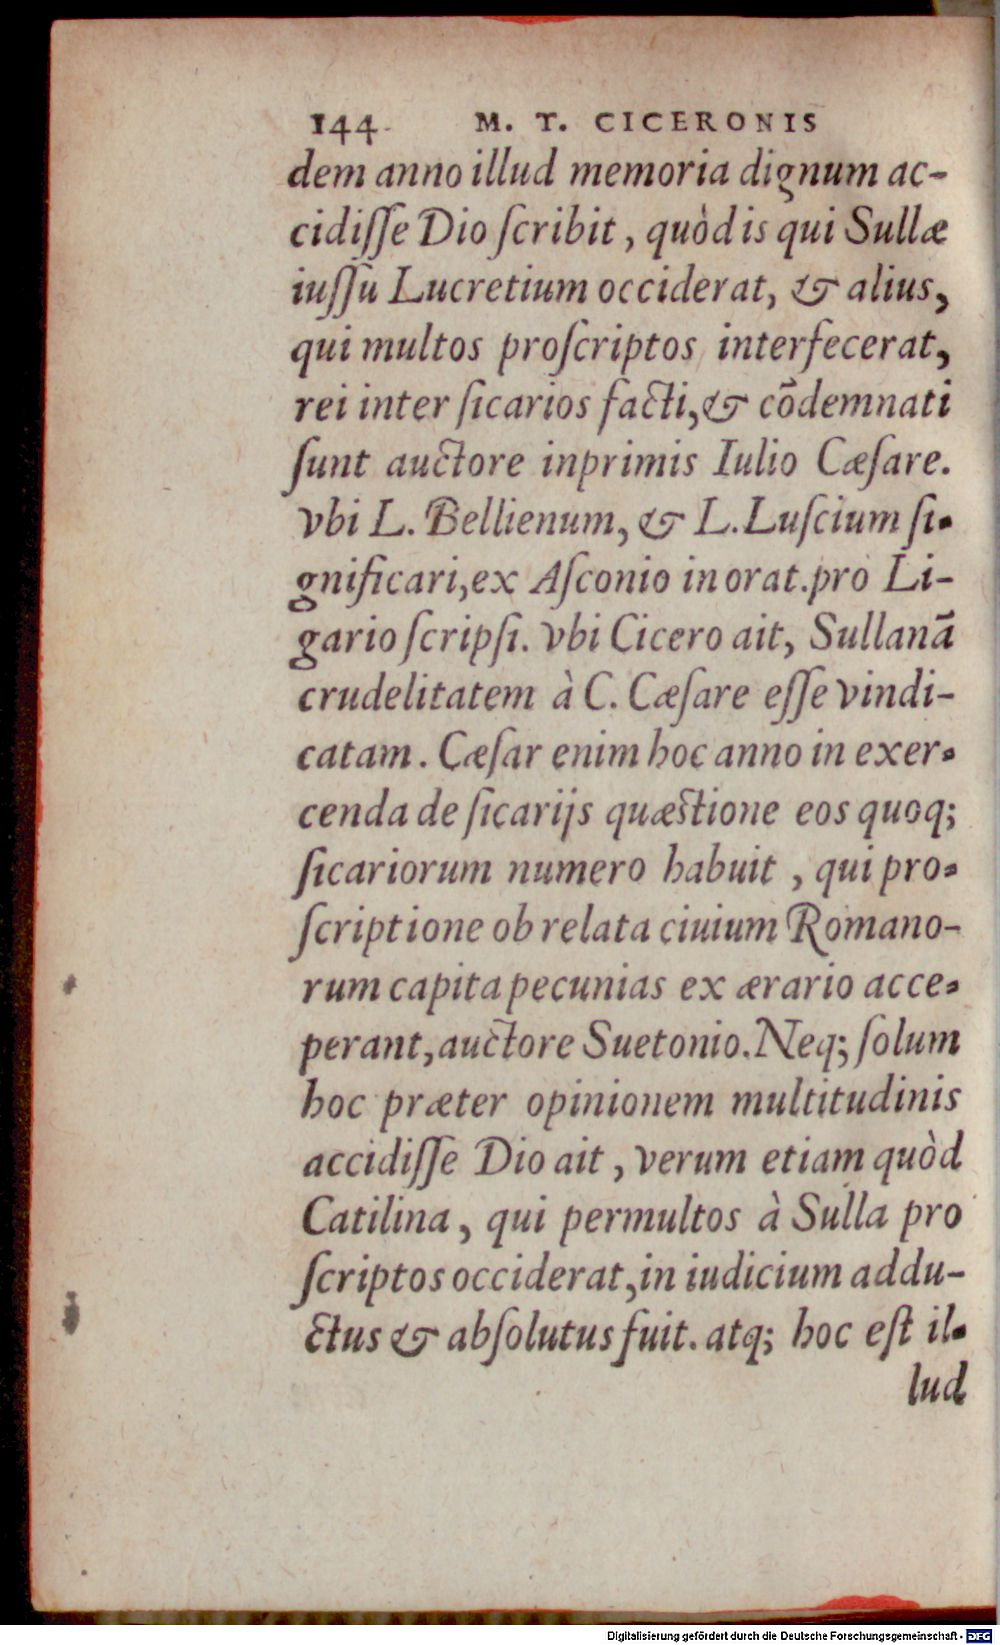 144 M. T. CICERONIS
dem anno illud memoria dignum ac-
cidiſſe Dio ſcribit, quòd is qui Sullæ
iuſſu Lucretium occiderat, & alius,
qui multos proſcriptos interfecerat,
rei inter ſicarios facti, & cōdemnati
ſunt auctore inprimis Iulio Cæſare.
vbi L. Bellienum, & L. Luſcium ſi-
gnificari, ex Aſconio in orat. pro Li-
gario ſcripſi. vbi Cicero ait, Sullanā
crudelitatem à C. Cæſare eſſe vindi-
catam. Cæſar enim hoc anno in exer-
cenda de ſicarijs quæstione eos quoq;
ſicariorum numero habuit, qui pro-
ſcriptione ob relata ciuium Romano-
rum capita pecunias ex ærario acce-
perant, auctore Suetonio. Neq; ſolum
hoc præter opinionem multitudinis
accidiſſe Dio ait, verum etiam quòd
Catilina, qui permultos à Sulla pro
ſcriptos occiderat, in iudicium addu-
ctus & abſolutus fuit. atq; hoc eſt il-
lud
Digitalisierung gefördert durch die Deutsche Forschungsgemeinschaft - DFG